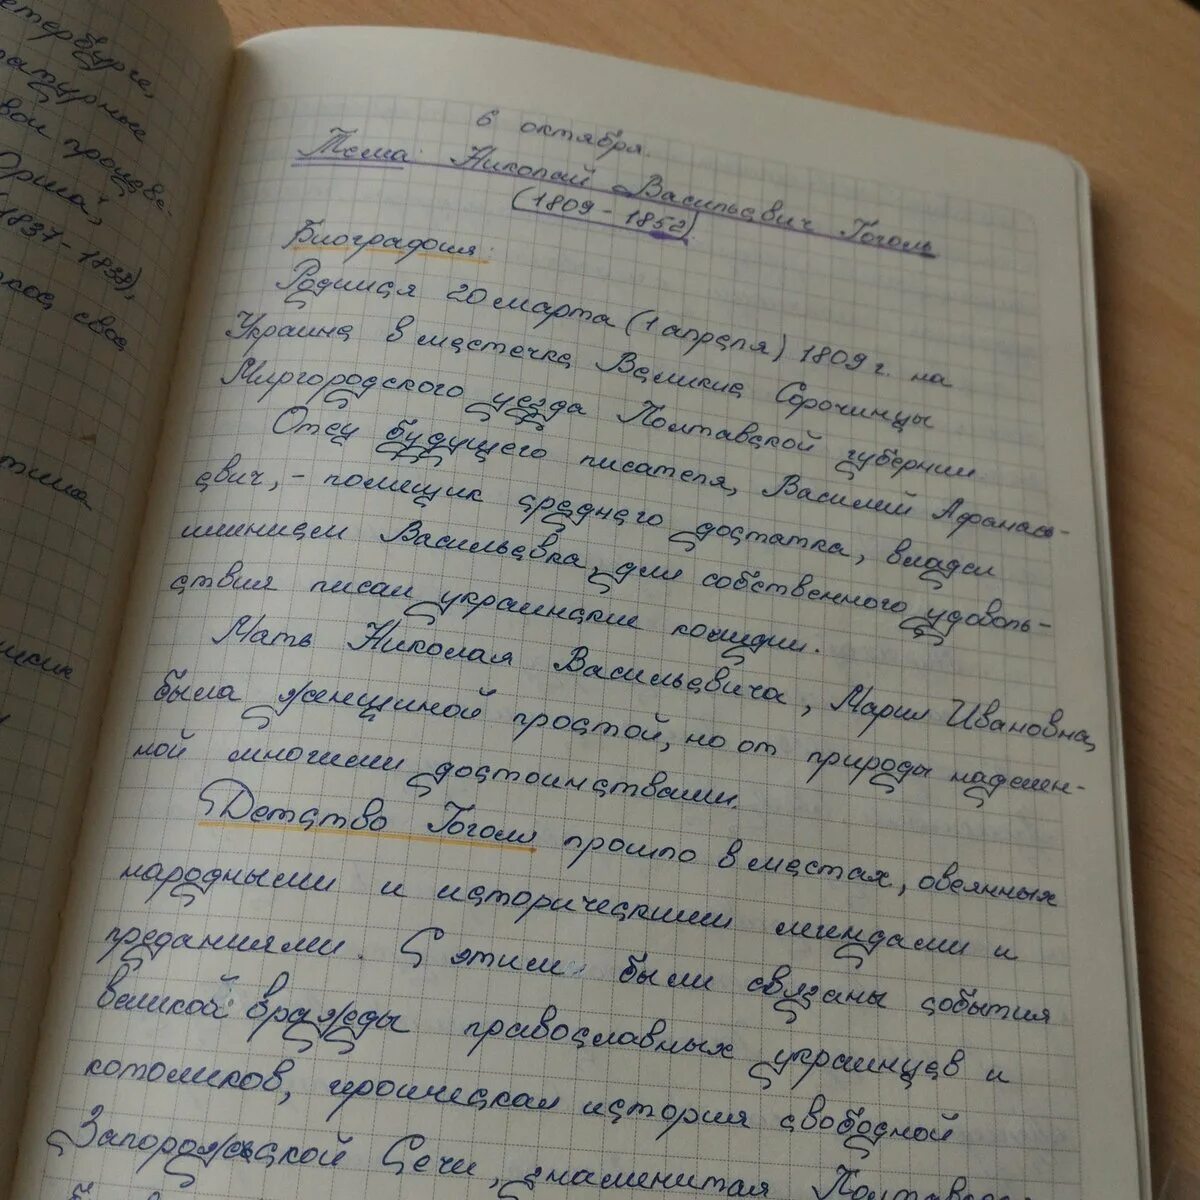 етербурге,
атурные
вои произве-
Орша",
1837-1838),
свое
тина
6 октября.
Тема: Николай Васильевич Гоголь
(1809-1852).
Биография:
Родился 20 марта (1 апреля) 1809 г. на
Украине в местечке Великие Сорочинцы
Миргородского уезда Полтавской губернии.
Отец будущего писателя, Василий Афанась-
евич, - помещик среднего достатка, владел
имением Васильевка, для собственного удоволь-
ствия писал украинские комедии.
Мать Николая Васильевича, Мария Ивановна,
была женщиной простой, но от природы наделен-
ной многими достоинствами.
Детство Гоголя прошло в местах, овеянных
народными и историческими легендами и
преданиями. С этим были связаны события
великой вражды православных украинцев и
католиков, героическая история свободной
Запорожской Сечи, знаменитая Полтавская